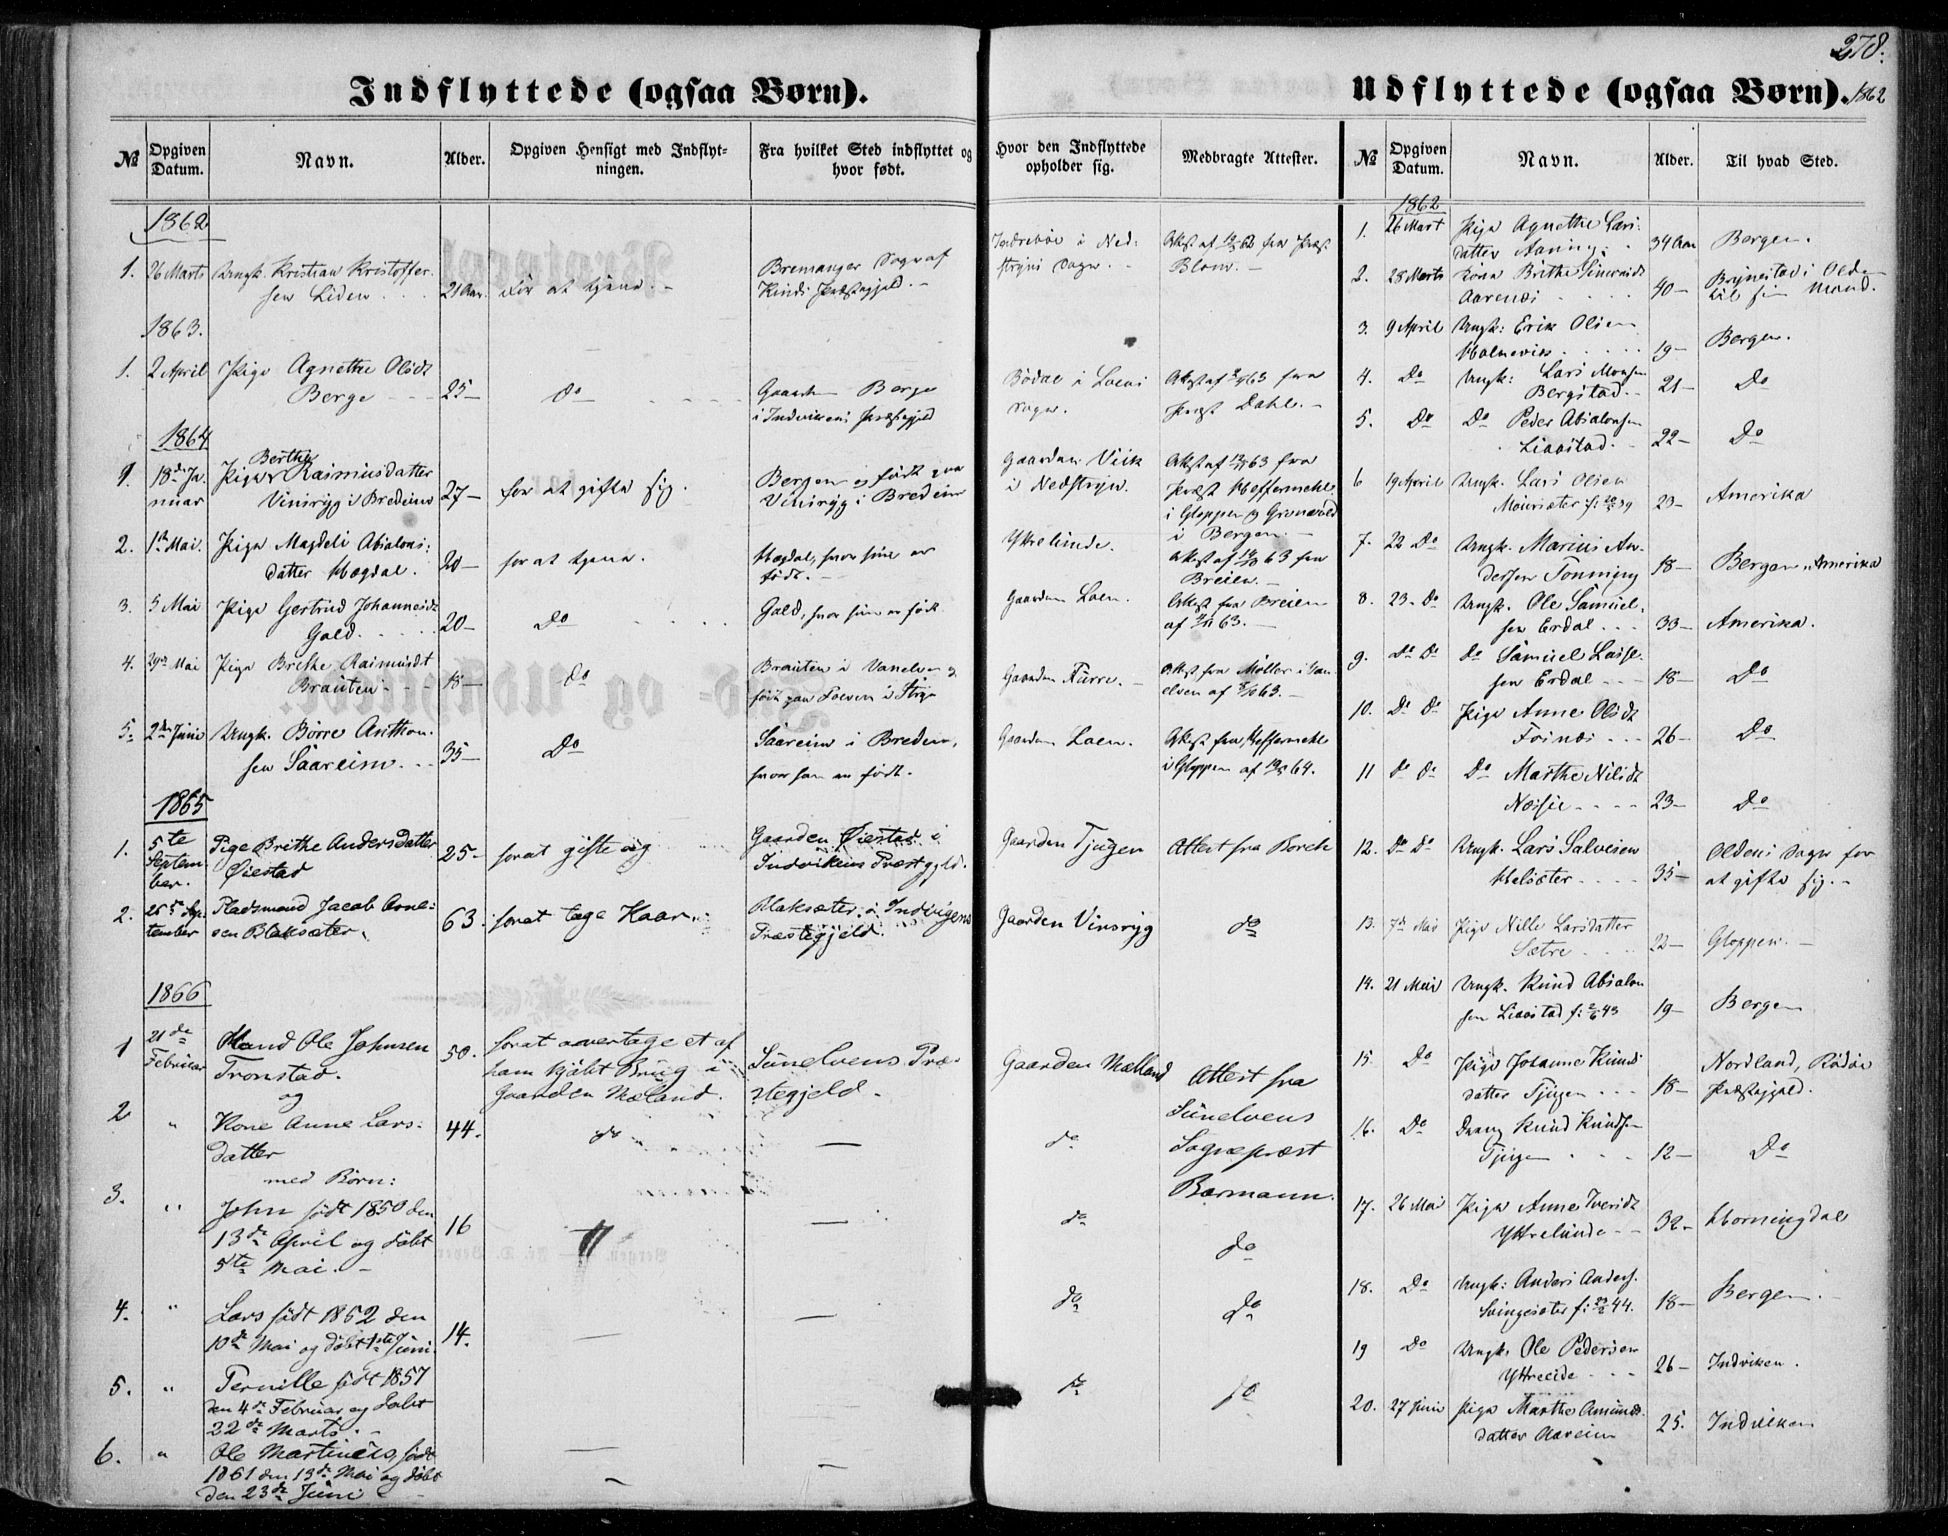 278.
Indflyttede (ogsaa Børn).
Udflyttede (ogsaa Børn). 1862
№ Opgiven Datum. Navn. Alder. Opgiven Hensigt med Indflyt-ningen. Fra hvilket Sted indflyttet og hvor født. Hvor den Indflyttede opholder sig. Medbragte Attester.
1862
1. 26 Marts Ungk. Kristian Kristoffer-
sen Liden 21 Aar. For at tjene.
Bremanger Sogn af
Kinds Præstegjeld.
i Ned-
stryns Sogn.
Attest af fra Præst
Blom.
1863.
1. 2 April Pige Agnethe Olsdt
Berge 25 Do
Gaarden Berge
i Indvikens Præstegjeld
Bødal i Loens
Sogn.
Attest af 63 fra
Præst Dahl.
1864
1. 18de Ja-
nuar Pige Berthe Rasmusdatter
Vinsryg i Bredeim 27 for at gifte sig.
Bergen, født paa
Vinsryg i Bredeim
Gaarden Viik
i Nedstryn.
Attest af 63 fra
Præst Heffermehl
i Gloppen og Grønvold
i Bergen.
2. 1ste Mai. Pige Magdeli Absalons-
datter Hegdal. 20 for at tjene.
Hegdal, hvor hun er
født.
Ytrelunde.
Attest af 63 fra
Breien.
3. 5 Mai Pige Gertrud Johannesdt
Gald. 20 Do
Gald, hvor hun er født
Gaarden Loen.
Attest fra Breien
af 63.
4. 29de Mai Pige Brithe Rasmusdt
Brauten 18 do
Brauten i Vanelven og
født paa i Stryn
Gaarden Furre.
Attest fra Møller i Van-
elven af 63.
5. 2den Juni Ungk. Børre Anthon-
sen Saareim 35 Do
Saareim i Bredeim,
hvor han er født.
Gaarden Loen.
Attest fra Heffermehl
i Gloppen af 64.
1865
1. 5te
Septem-
ber. Pige Brithe Andersdatter
Øiestad 25 forat gifte sig
Gaarden Øiestad i
Indvikens Præstgjeld.
Gaarden Tjugen Attest fra Borch
2. 25de Sep-
tember Pladsmand Jacob Arne-
sen Blaksæter. 63. forat tage Kaar.
Blaksæter i Indvigens
Præstegjeld.
Gaarden Vinsryg do
1866
1 21de
Februar Mand Ole Johnsen
Tronstad.
og
50. forat overtage et af
ham kjøbt Brug i
Gaarden Mæland.
Sunelvens Præ-
stegjeld.
Gaarden Mælland
Attest fra
Sunelvens
Sognepræst
Barmann.
2 " Kone Anne Lars-
datter
44. do — do
med Børn:
3. " John født 1850 den
13de April og døbt
5te Mai. 16 " — do do
4. " Lars født 1852 den
10de Mai og døbt 1ste Juni 14. — — do do
5. " Pernille født 1857
den 4de Februar og døbt
22de Marts. do do
6. " Ole Martinus, født
1861 den 13de Mai og døbt
den 23de Juni
№ Opgiven Datum. Navn. Alder. Til hvad Sted.
1862
1. 26 Mart Pige Agnethe Lars-
datter Aaning 34 Aar Bergen.
2. 28 Marts Kone Brithe Simonsdt
Aarenæs 40 Brynestad i Olden
til sin Mand.
3. 9 April Ungk: Erik Olsen
Holmevik 19 Bergen.
4. Do Ungk: Lars Monsen
Bergstad. 21 Do
5. Do Do Peder Absalonsen
Liaastad. 22 Do
6 19 April Ungk. Lars Olsen
23 Amerika
7. 22 Do Ungk. Marius An-
dersen Tonning 18 Bergen, Amerika
8. 23. Do Ungk. Ole Samuel-
sen Erdal 33 Amerika.
9. Do Do Do Samuel Lasse-
sen Erdal 18 Do
10. Do Do Pige Anne Olsdt
26 Do
11 Do Do Do Marthe Nilsdt
23 Do
12. Do Do Ungk. Lars Salvesen
Helsæter 35 Oldens Sogn for
at gifte sig.
13. 7de Mai Pige Nille Larsdatter
Sætre 22 Gloppen.
14. 21 Mai Ungk. Knud Absalon-
sen Liaastad f: 43 19 Bergen
15. Do Pige Johanne Knuds-
datter Tjugen 18 Nordland, Rødøe
Præstegjeld.
16. Do Dreng Knud Knudsen
Tjugen 12 Do
17. 26 Mai Pige Anne Iversdt
Ytrelunde 32 Horningdal
18. Do Ungk: Anders Anders.
f: 44. 18 Bergen.
19 Do Ungk. Ole Pedersen
Ytreeide 26 Indviken.
20. 27 Juni Pige Marthe Amunds-
datter Aareim 25. Indviken